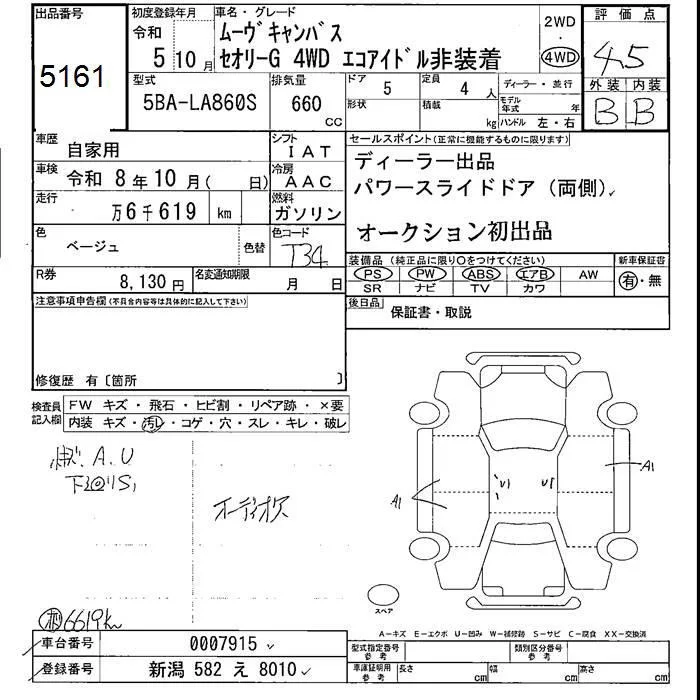 出品番号
5161
初度登録年月
令和
5 10月
車名・グレード
ムーヴキャンバス
セオリーG 4WD エコアイドル非装着
2WD
・
4WD
評価点
4.5
外装 内装
B B
型式
5BA-LA860S
排気量
660
cc
ドア
5
形状
定員
4 人
積載
kg
ディーラー・並行
モデル年式 年
ハンドル 左・右
車歴
自家用
シフト
IAT
車検
令和 8年10月( 日)
冷房
AAC
走行
万6千619 km
燃料
ガソリン
色
ベージュ
色替
色コード
T34
R券
8,130円
名変通知期限
月 日
セールスポイント(正常に機能するものに限ります)
ディーラー出品
パワースライドドア(両側)
オークション初出品
装備品(純正品に限り○をつけてください)
PS PW ABS エアB AW
SR ナビ TV カワ
新車保証書
有・無
後日品
保証書・取説
注意事項申告欄(不具合内容等は具体的に記入して下さい)
修復歴 有〔箇所 〕
検査員
記入欄
FW キズ・飛石・ヒビ割・リペア跡・×要
内装 キズ・汚レ・コゲ・穴・スレ・キレ・破レ
A.U
オーディオレス
6619km
A1
A1
U1
U1
スペア
A―キズ E―エクボ U―凹み W―補修跡 S―サビ C―腐食 XX―交換済
車台番号
0007915
登録番号
新潟 582 え 8010
型式指定番号
参考
類別区分番号
参考
車庫証明用
参考
長さ cm
幅 cm
高さ cm